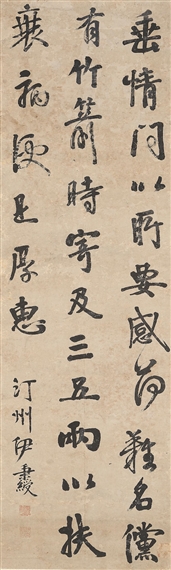 垂情问以所要感荷難名儻
有竹箭時寄及三五兩以扶
衰病便是厚惠
汀州伊秉綬